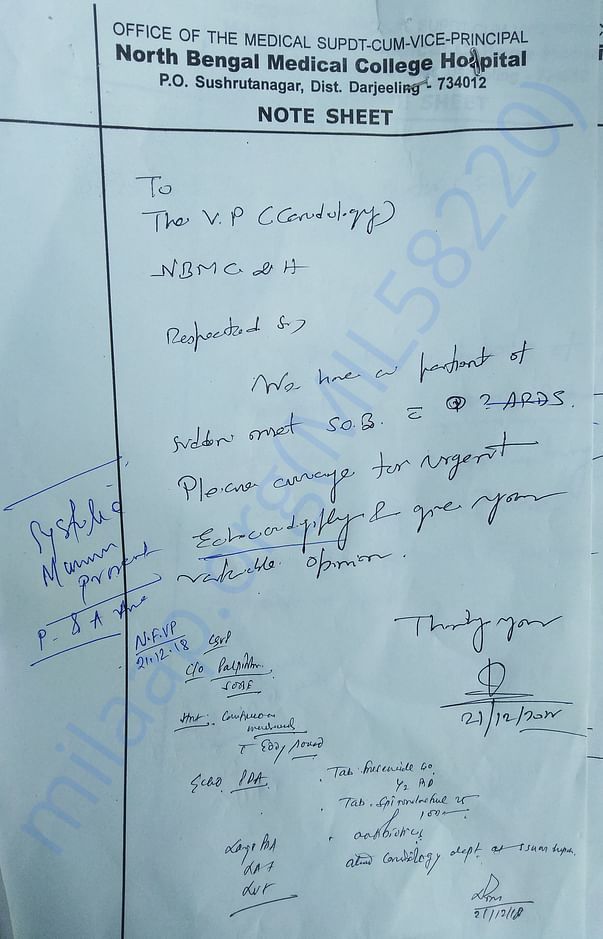 OFFICE OF THE MEDICAL SUPDT-CUM-VICE-PRINCIPAL
North Bengal Medical College Hospital
P.O. Sushrutanagar, Dist. Darjeeling - 734012
NOTE SHEET
To
The V.P (Cardiology)
NBMC & H
Respected Sir,
We have a patient of
sudden onset S.O.B. c̄ ? ARDS.
Please arrange for urgent
Echocardiography & give your
valuable opinion.
Thanking you
21/12/2018
Systolic
Murmur
present
P-
N.F.VP
21.12.18
C/o Palpitation
SOBE
Continuous
murmur
c̄ Eddy sound
Echo PDA
Large PDA
Tab. Furosemide 40
1/2 BD
Tab. Spironolactone 25
antibiotics
cardiology dept at
21/12/18
milaap.org(MIL58220)